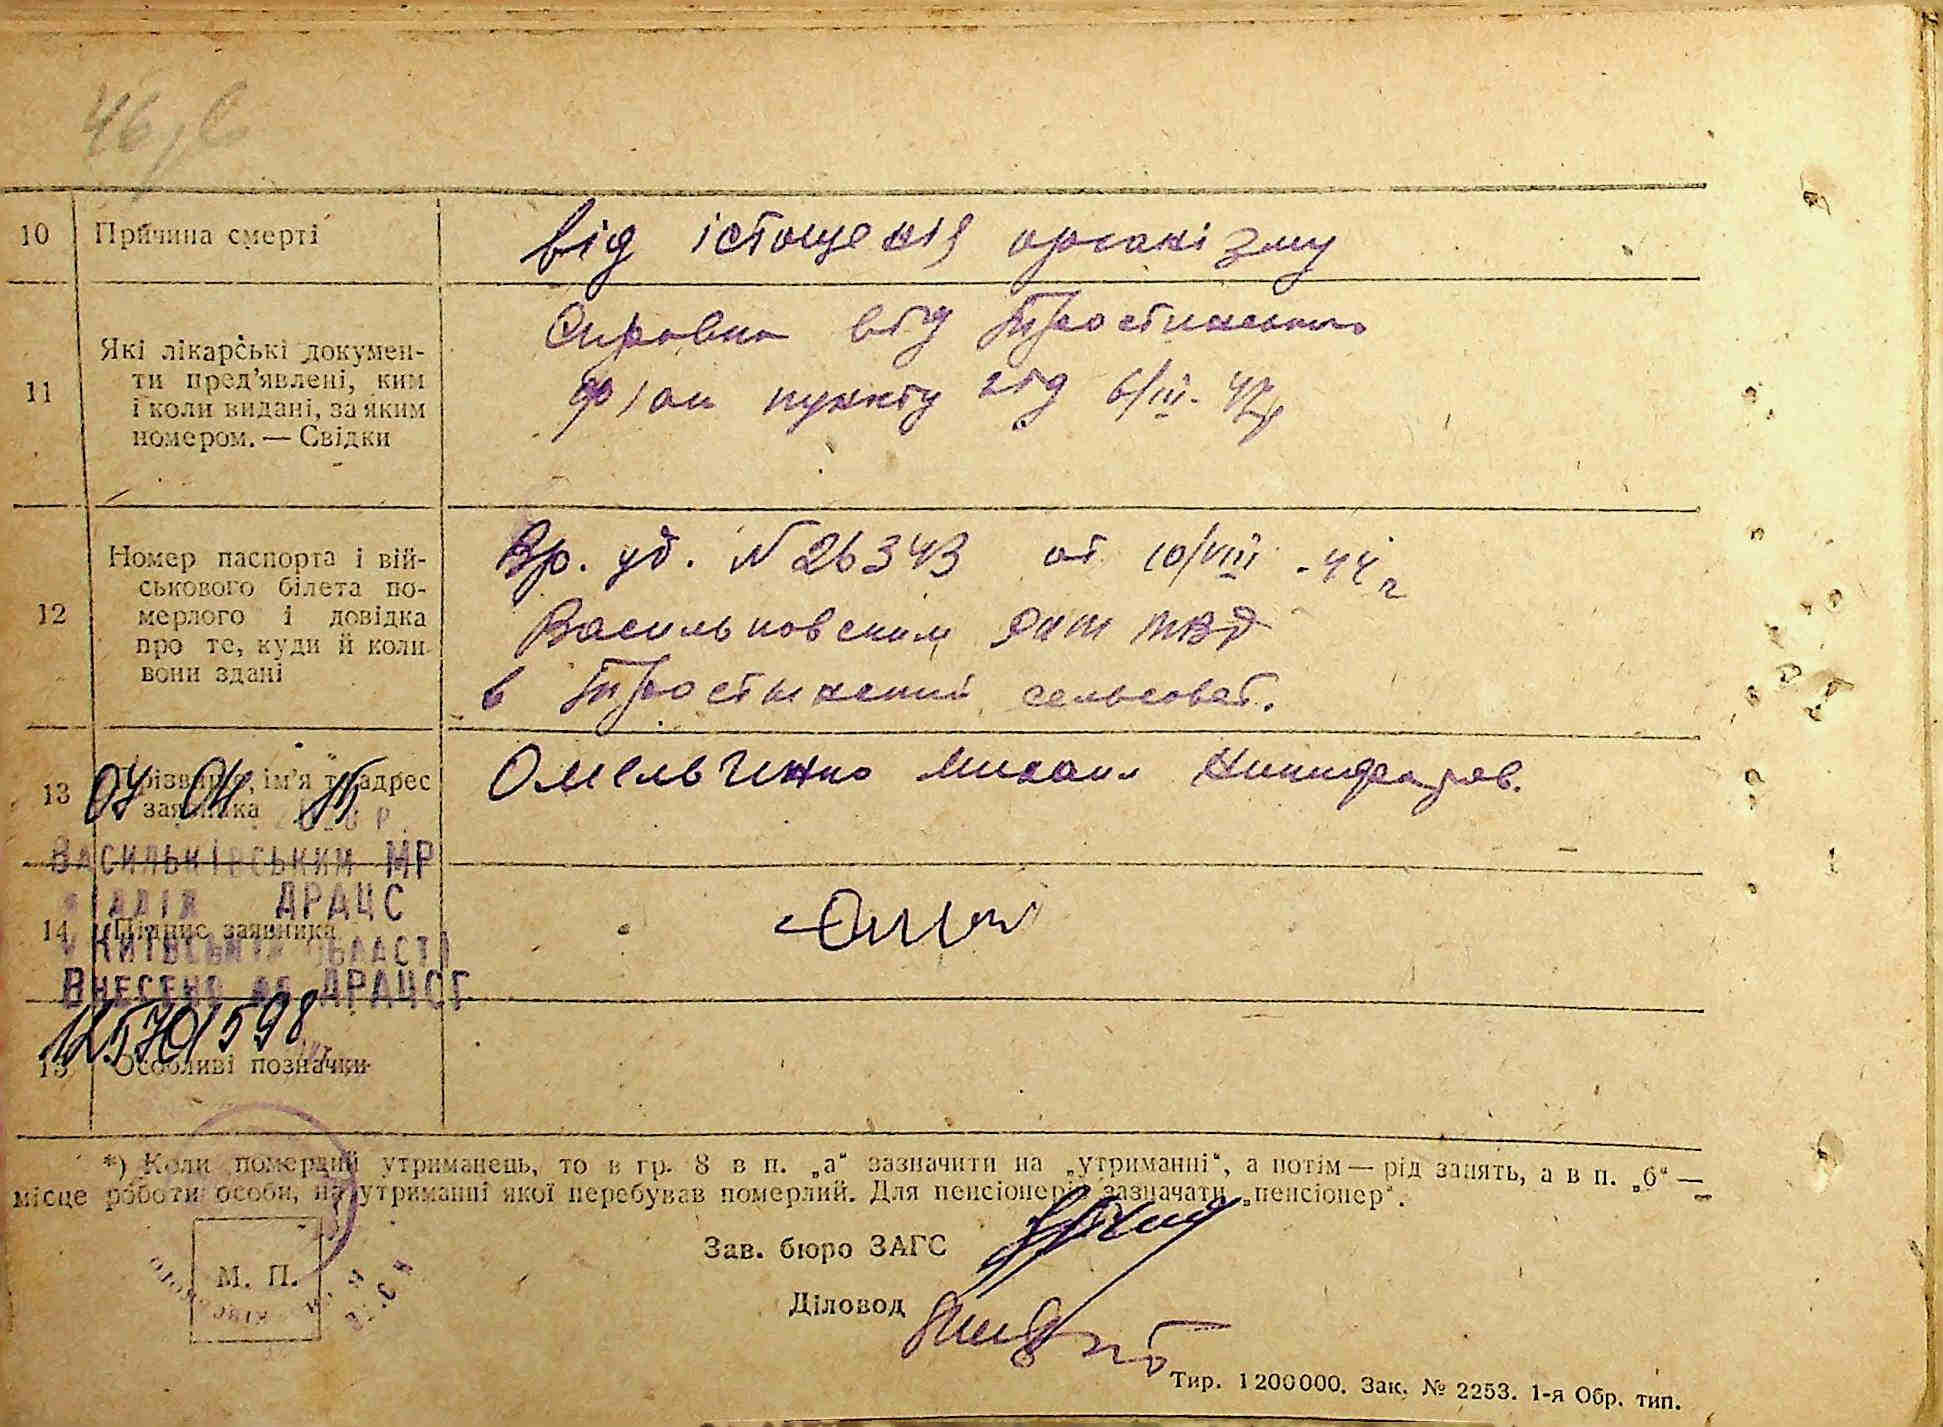 46
10 Причина смерті від істощенія організму
11 Які лікарські докумен-
ти пред'явлені, ким
і коли видані, за яким
номером. — Свідки
Справка від Тростинского
ф/ак пункту від 6/III-47р
12 Номер паспорта і вій-
ськового білета по-
мерлого і довідка
про те, куди й коли
вони здані
Вр. уд. N 26343 от 10/VIII -44г
Васильковским
в Тростинский сельсовет.
13 Прізвище, ім'я та адрес
заявника
Омельченко Михаил Никифоров.
04 04
ВАСИЛЬКІВСЬКИМ МР
ВІДДІЛ ДРАЦС
14 Підпис заявника
У КИЇВСЬКІЙ ОБЛАСТІ
ВНЕСЕНО ДО ДРАЦСГ
12570598
15 Особливі позначки
*) Коли померлий утриманець, то в гр. 8 в п. „а“ зазначити на „утриманні“, а потім — рід занять, а в п. „б“ —
місце роботи особи, на утриманні якої перебував померлий. Для пенсіонерів зазначати „пенсіонер“.
Зав. бюро ЗАГС
М. П.
Діловод
Тир. 1200000. Зак. № 2253. 1-я Обр. тип.